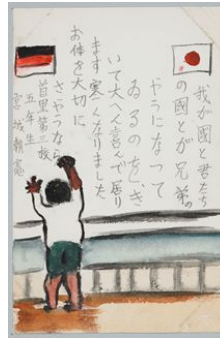 我が國と君たち
の國とが兄弟の
やうになつて
ゐるのをき
いて大へん喜んで居り
ます寒くなりました
お体を大切に
さやうなら
首里第一
五年生
宮城